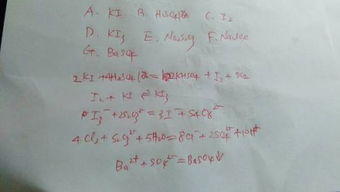 A. KI B. H₂SO₄浓 C. I₂
D. KI₃ E. Na₂S₂O₃ F.
G. BaSO₄
2KI + H₂SO₄ = KHSO₄ + I₂ + SO₂
I₂ + KI ⇌ KI₃
I₃⁻ + 2S₂O₃²⁻ = 3I⁻ + S₄O₆²⁻
4Cl₂ + S₂O₃²⁻ + 5H₂O = 8Cl⁻ + 2SO₄²⁻ + 10H⁺
Ba²⁺ + SO₄²⁻ = BaSO₄↓